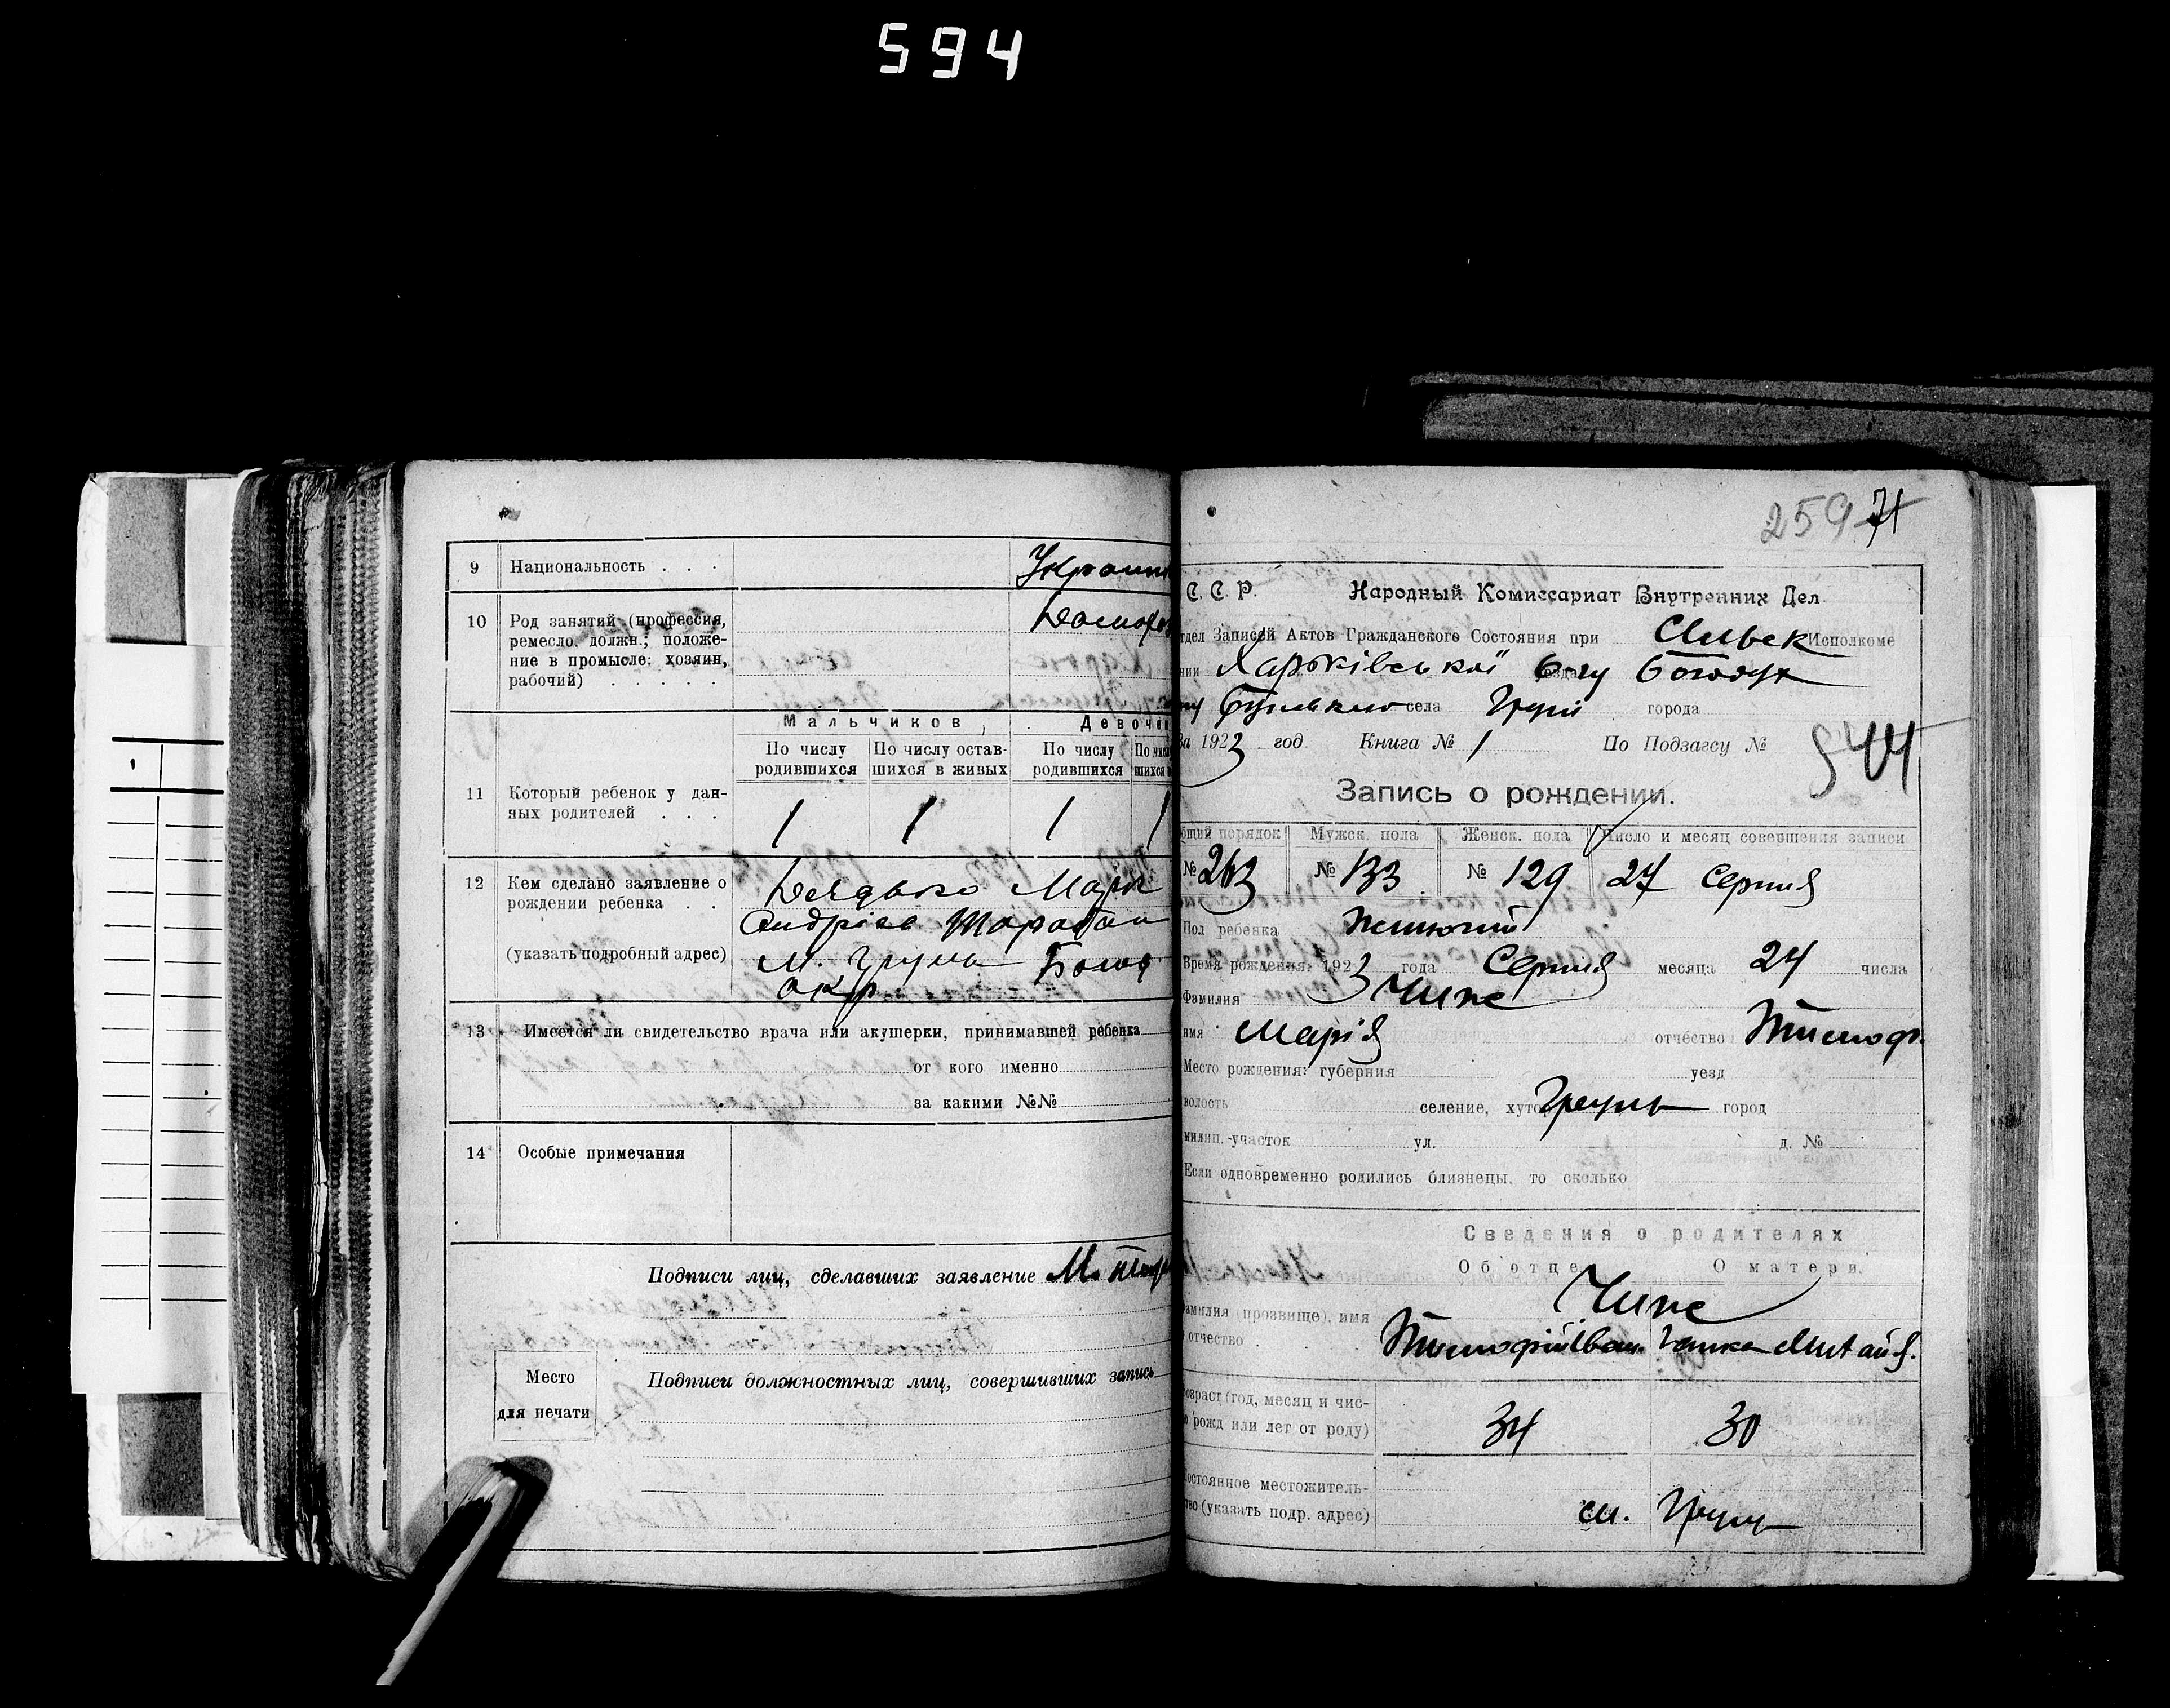 594
9 Национальность . . .
10 Род занятий (профессия,
ремесло, должн.; положе-
ние в промысле: хозяин,
рабочий) . . . . .
Мальчиков, Девочек
По числу родившихся По числу остав-шихся в живых По числу родившихся
11 Который ребенок у дан-
ных родителей . . .
1 1 1 1
12 Кем сделано заявление о
рождении ребенка . .
(указать подробный адрес)
Дядько Марк
Андріев Тарабан
м. Грунь Богод
окр
13 Имеется ли свидетельство врача или акушерки, принимавшей ребенка
от кого именно
за какими №№
14 Особые примечания
Подписи лиц, сделавших заявление М.
Место
для печати
Подписи должностных лиц, совершивших запись
259 71
С. С. Р. Народный Комиссариат Внутренних Дел.
Записей Актов Гражданского Состояния при Исполкоме
Харьківської Богодух
села Груні города
За 1923 год. Книга № 1 По Подзагсу №
544
Запись о рождении.
Общий порядок Мужск. пола Женск. пола Число и месяц совершения записи
№ 263 № 133 № 129 27 Серпня
Пол ребенка Жиночий
Время рождения: 1923 года Серпня месяца 24 числа
Фамилия Чипе
имя Марія отчество Тимоф.
Место рождения: губерния уезд
волость селение, хутор Грунь город
милиц.-участок ул. д. №
Если одновременно родились близнецы, то сколько
Сведения о родителях
Об отце О матери.
Чипе
Фамилия (прозвище), имя
и отчество
Тимофій Іван. Ганна
Возраст (год, месяц и чис-
ло рожд или лет от роду)
34 30
Постоянное местожитель-
ство (указать подр. адрес)
м. Грунь